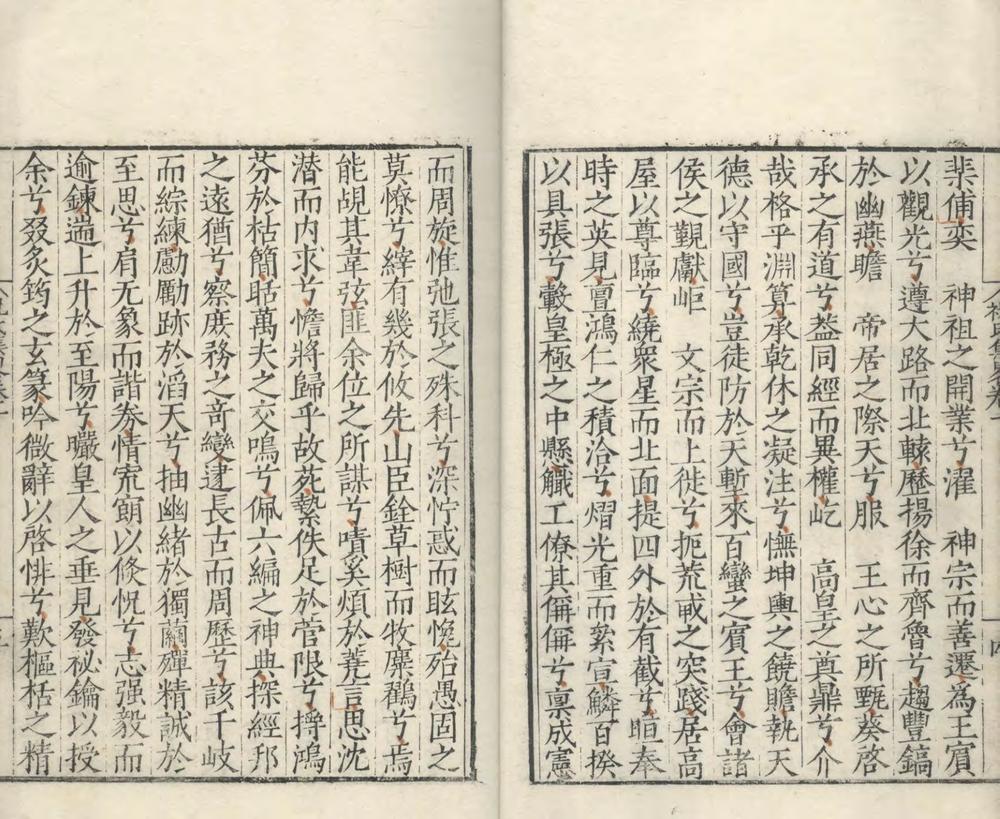 棐俌奕　神祖之開業兮濯　神宗而善遷為王賓
以觀光兮遵大路而北轅歷揚徐而齊魯兮趨豐鎬
於幽燕瞻　帝居之際天兮服　王心之所甄葵啓
承之有道兮益同經而異權屹　高皇之奠鼎兮介
哉格乎淵算承乾休之凝注兮憮坤輿之饒贍執天
德以守國兮豈徒防於天塹來百蠻之賓王兮會諸
侯之覲獻岠　文宗而上徙兮扼荒戒之突踐居高
屋以尊臨兮繞衆星而北面提四外於有截兮晅奉
時之英見亶鴻仁之積洽兮熠光重而絫宣麟百揆
以具張兮轂皇極之中懸觿工僚其俩俩兮稟成憲
而周旋惟弛張之殊科兮深忊惑而眩愧殆愚固之
莫憭兮繹有幾於攸先山臣銓草樹而牧麋鶴兮焉
能覘其韋弦匪余位之所謀兮嘖奚煩於蕘言思沈
潜而内求兮憺將歸乎故苑縶佚足於菅限兮撙鴻
芬於枯簡聒萬夫之交鳴兮佩六編之神典探經邦
之遠猶兮察庶務之竒變逮長古而周歷兮該千岐
而綜練勴勵跡於滔天兮抽幽緒於獨繭殫精誠於
至思兮肩无象而諧券情宂朗以倏怳兮志强毅而
逾鍊遄上升於至陽兮矙皇人之垂見發祕鑰以授
余兮叕炙筠之玄篆唫微辭以啓悱兮歎樞栝之精
四